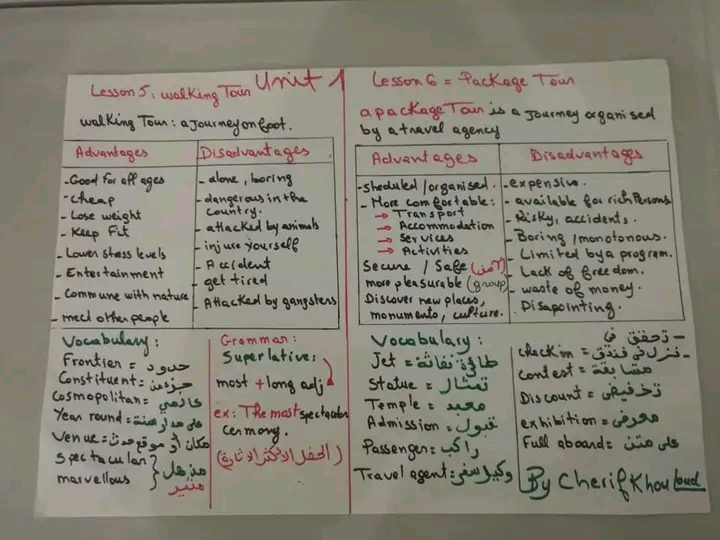 Unit 1
Lesson 5: walking Tour
walking Tour: a Journey on foot.
Advantages
- Good For all ages
- cheap
- Lose weight
- Keep Fit
- Lower stess levels
- Entertainment
- Commune with nature
- mect other people
Disadvantages
- alone, boring
- dangerous in the
country.
- attacked by animals
- injure yourself
- Accident
- get tired
- Attacked by gangsters
Vocabulary:
Frontier = حدود
Constituent =
Cosmopolitan = عالمي
Year round = على مدار سنة
Venue = مكان أو موقع حدث
Spectacular
marvellous
} مذهل
مثير
Grammar:
Superlative:
most + long adj
ex: The most spectacular
cermony.
(الحفل الأكثر إثارة)
Lesson 6 = Package Tour
a package Tour is a journey organised
by a travel agency
Advantages
- sheduled / organised.
- More comfortable:
→ Transport
→ Accommodation
→ Services
→ Activities
Secure / Safe (آمن)
more pleasurable (group)
Discover new places,
monuments, culture.
Disadvantages
- expensive.
- available for rich Persons
- Risky, accidents.
- Boring / monotonous.
- Limited by a program.
- Lack of freedom.
- waste of money.
- Disapointing.
Vocabulary:
Jet = طائرة نفاثة
Statue = تمثال
Temple = معبد
Admission = قبول
Passenger = راكب
Travel agent = وكيل سفر
- تحقق في
check in = - نزل في فندق
contest = مسابقة
Discount = تخفيض
exhibition = معرض
Full aboard = على متن
By Cherif Khouloud